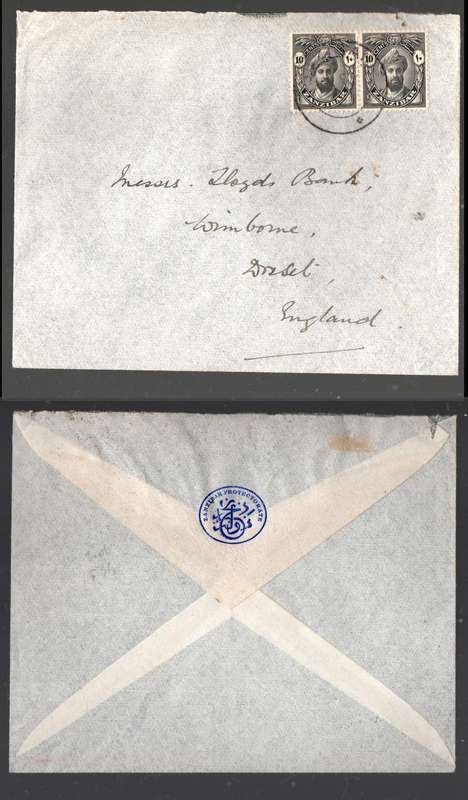 CENTS CENTS
10 ١٠ 10 ١٠
ZANZIBAR ZANZIBAR
Messrs. Lloyds Bank,
Wimborne,
Dorset,
England.
ZANZIBAR PROTECTORATE